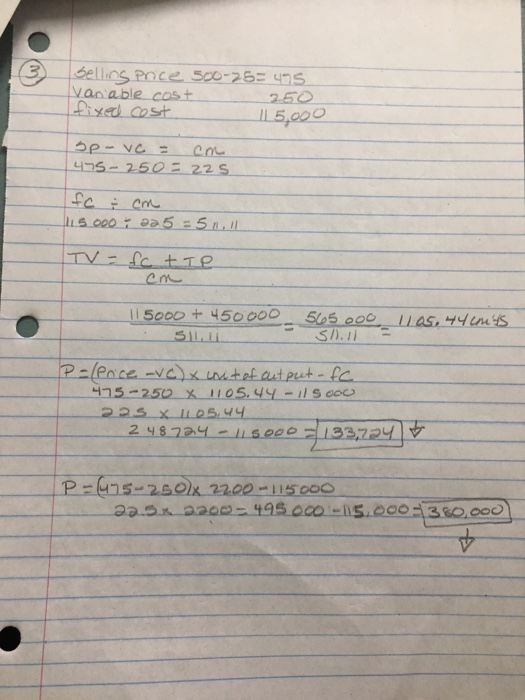 3 Selling Price 500-25= 475
Variable cost 250
fixed cost 115,000
SP - VC = CM
475 - 250 = 225
fc ÷ cm
115 000 ÷ 225 = 511.11
TV = fc + TP
cm
115000 + 450000 = 565 000 = 1105.44 units
511.11 511.11
P = (Price - VC) x unit of output - fC
475-250 x 1105.44 - 115000
225 x 1105.44
248724 - 115000 = 133,724
P = (475-250) x 2200 - 115000
225 x 2200 = 495 000 - 115,000 = 380,000